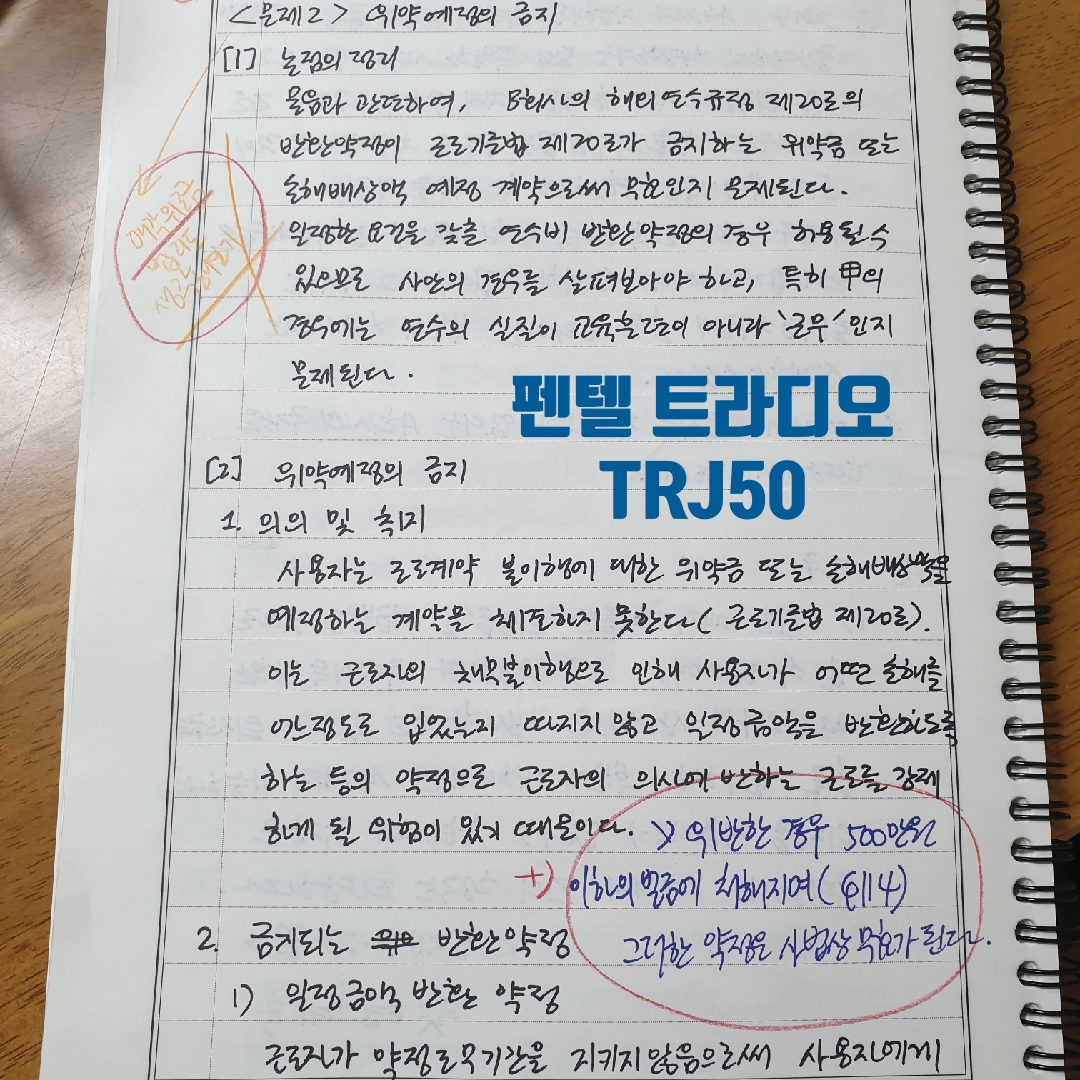 <문제2> 위약예정의 금지
[1] 논점의 정리
물음과 관련하여, B회사의 해외연수규정 제20조의
반환약정이 근로기준법 제20조가 금지하는 위약금 또는
손해배상액 예정 계약으로써 무효인지 문제된다.
일정한 요건을 갖출 연수비 반환약정의 경우 허용될 수
있으므로 사안의 경우를 살펴보아야 하고, 특히 甲의
경우에는 연수의 실질이 교육훈련이 아니라 '근무'인지
문제된다.
펜텔 트라디오
TRJ50
[2] 위약예정의 금지
1. 의의 및 취지
사용자는 근로계약 불이행에 대한 위약금 또는 손해배상액을
예정하는 계약을 체결하지 못한다(근로기준법 제20조).
이는 근로자의 채무불이행으로 인해 사용자가 어떤 손해를
어느정도로 입었는지 따지지 않고 일정금액을 반환하도록
하는 등의 약정으로 근로자의 의사에 반하는 근로를 강제
하게 될 위험이 있기 때문이다.
위반한 경우 500만원
+) 이하의 벌금에 처해지며(§114)
그러한 약정은 사법상 무효가 된다.
2. 금지되는 반환약정
1) 일정금액 반환 약정
근로자가 약정근무기간을 지키지 않음으로써 사용자에게